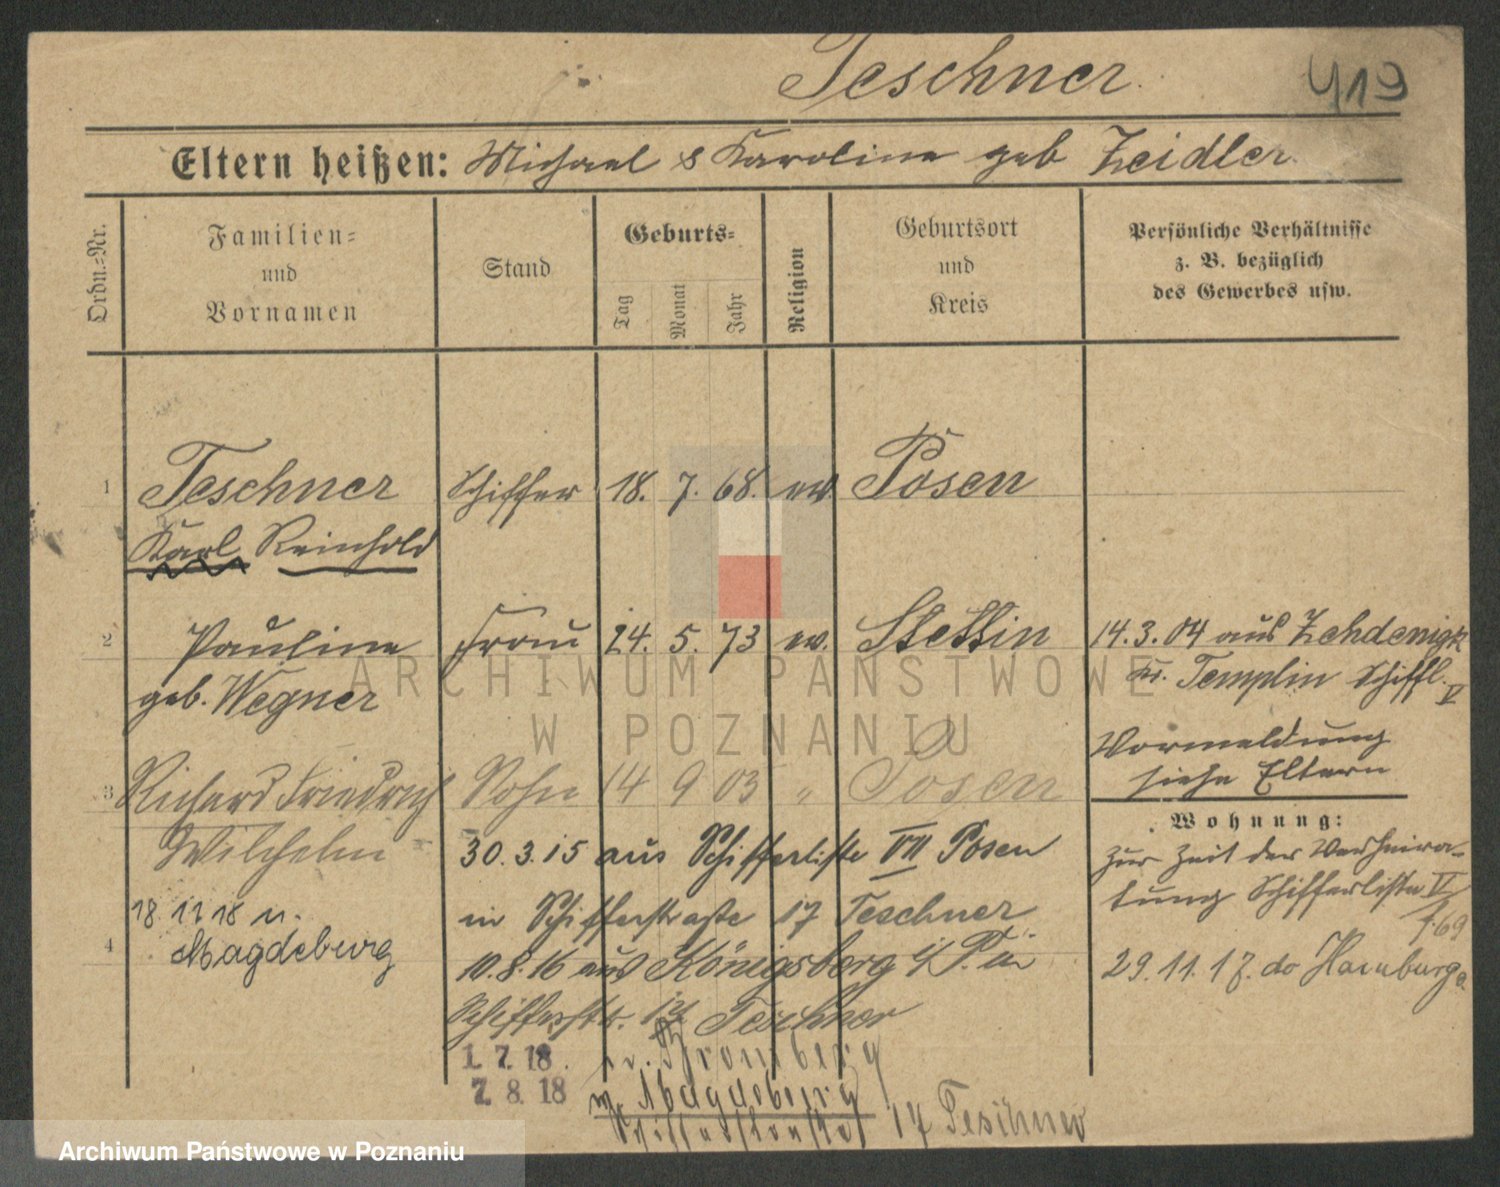 Teschner.
419
Eltern heißen: Michael & Karoline geb Zeidler.
Ordn.-Nr.
Familien-
und
Vornamen
Stand
Geburts-
Tag
Monat
Jahr
Religion
Geburtsort
und
Kreis
Persönliche Verhältnisse
z. B. bezüglich
des Gewerbes usw.
1 Teschner Schiffer 18. 7. 68. ev. Posen
Karl Reinhold
2 Pauline Frau 24. 5. 73 ev. Stettin
geb. Wegner
14.3.04 aus Zehdenigk
Kr. Templin Schiffl. V
Vormeldung
siehe Eltern
3 Richard Friedrich Sohn 14 9 03 " Posen
Wilhelm
30.3.15 aus Schifferliste VII Posen
in Schifferstraße 17 Teschner
10.8.16 aus Königsberg i/Pr. in
Schifferstr. 17 Teschner
4
18 11 18 n.
Magdeburg
1. 7. 18. v. Bromberg
7. 8. 18 Magdeburg
Schifferstraße 17 Teschner
Wohnung:
Zur Zeit der Verheira-
tung Schifferliste V
f. 69
29.11.17. do Hamburg
ARCHIWUM PAŃSTWOWE
W POZNANIU
Archiwum Państwowe w Poznaniu